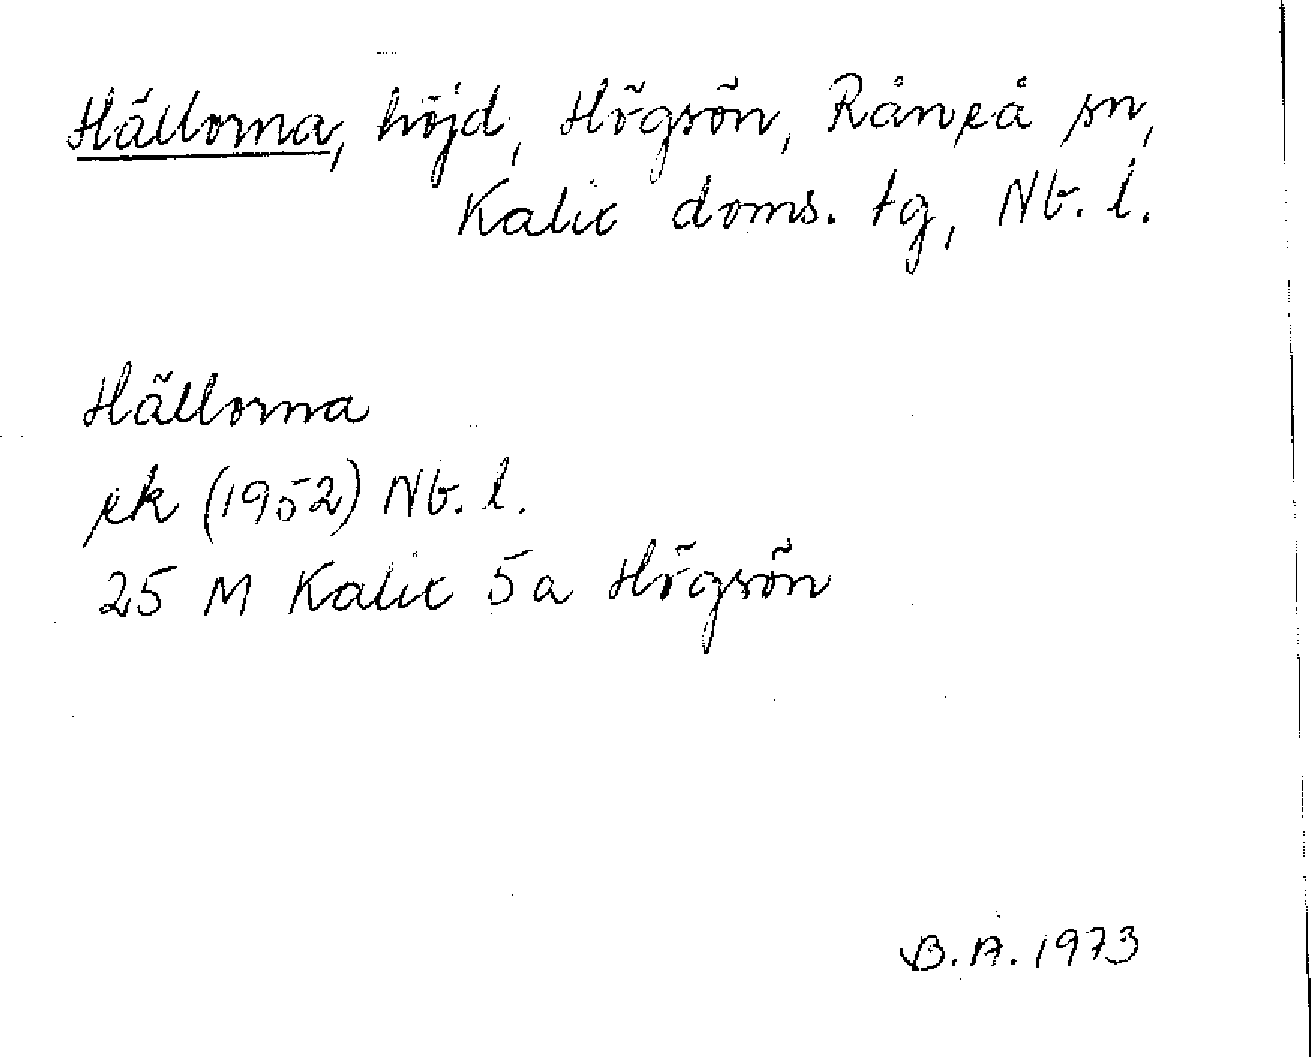 Hällorna, höjd, Högsön, Råneå sn,
Kalix doms. tg, Nb. l.
Hällorna
ek (1952) Nb. l.
25 M Kalix 5a Högsön
B. Å. 1973